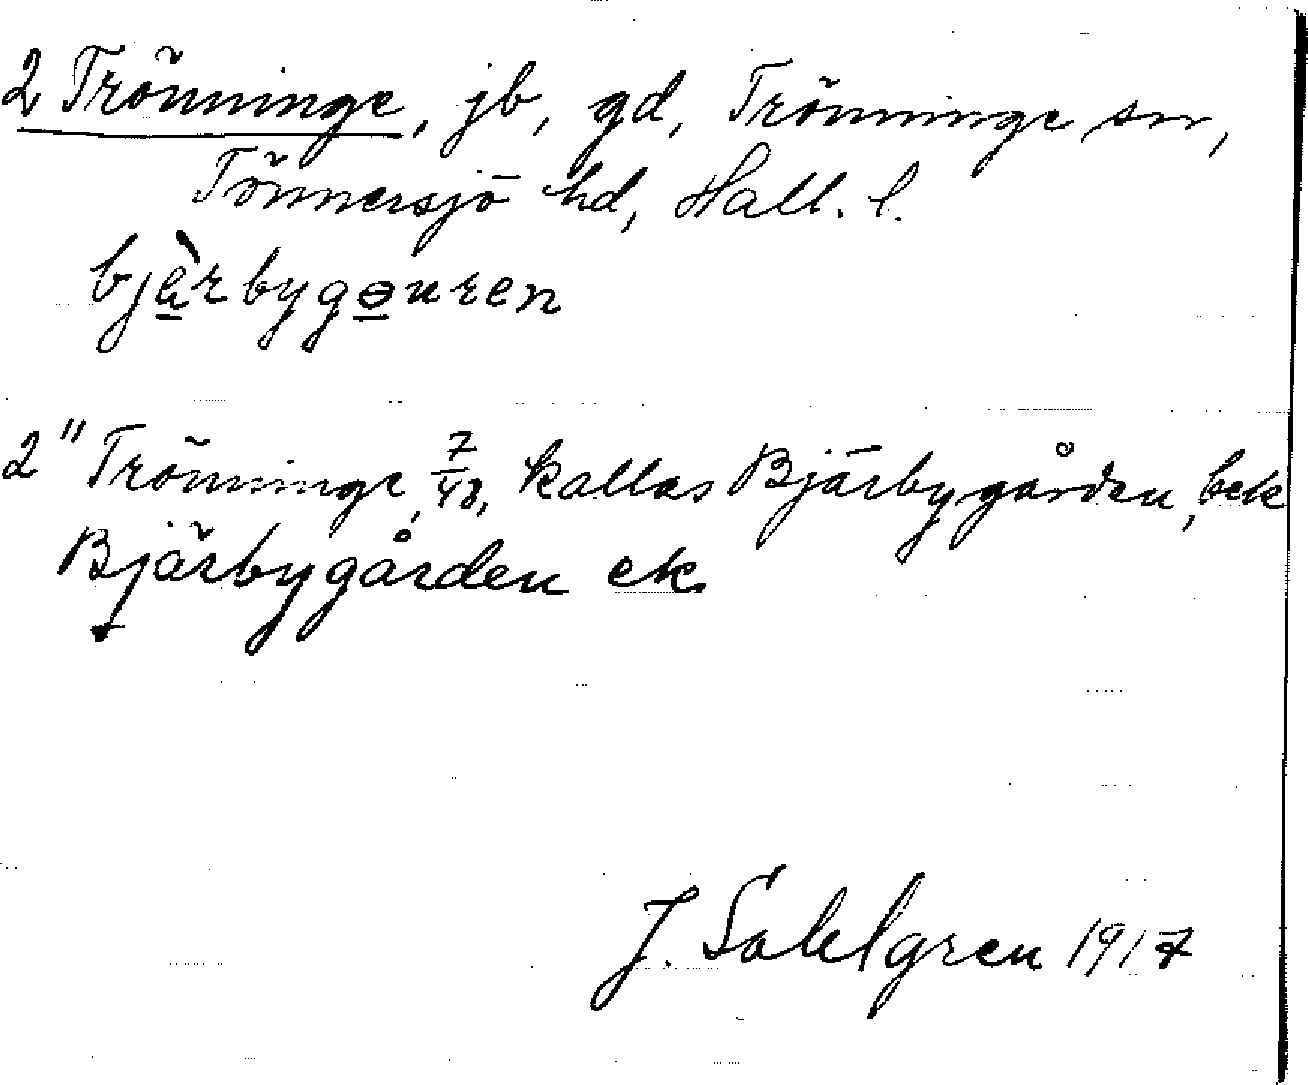 2 Trönninge, jb, gd, Trönninge sn,
Tönnersjö hd, Hall. l.
bjàrbygɵuren
2" Trönninge, 7/48, kallas Bjärbygården, bek
Bjärbygården ek.
J. Sahlgren 1917